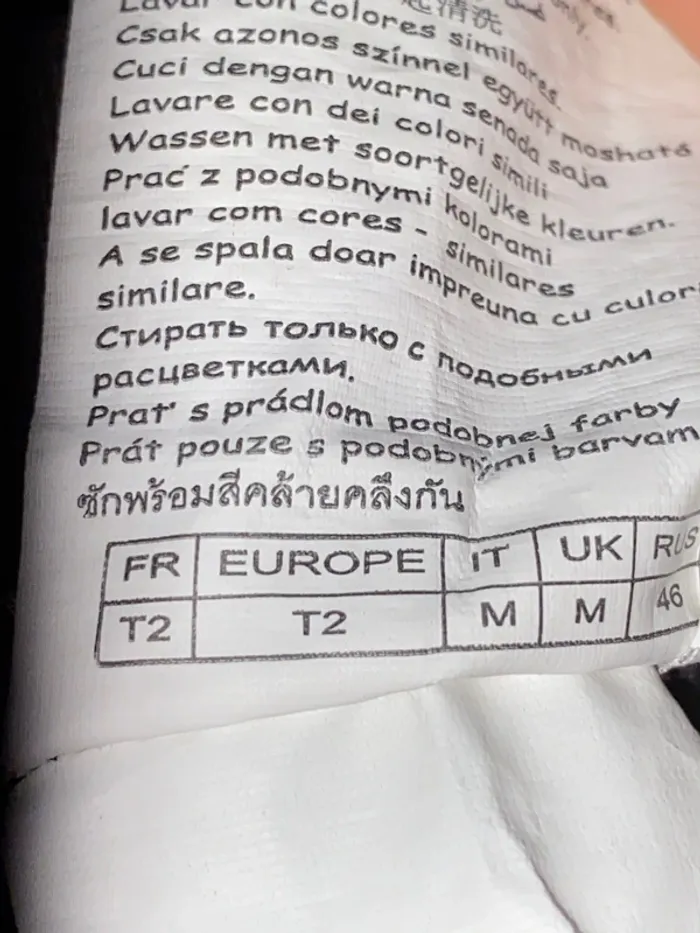 Lavar con colores similares.
清洗
Csak azonos színnel együtt mosható
Cuci dengan warna senada saja
Lavare con dei colori simili
Wassen met soortgelijke kleuren.
Prać z podobnymi kolorami
lavar com cores - similares
A se spala doar impreuna cu culori
similare.
Стирать только с подобными
расцветками.
Prat' s prádlom podobnej farby
Prát pouze s podobnými barvam
ซักพร้อมสีคล้ายคลึงกัน
FR EUROPE IT UK RUS
T2 T2 M M 46